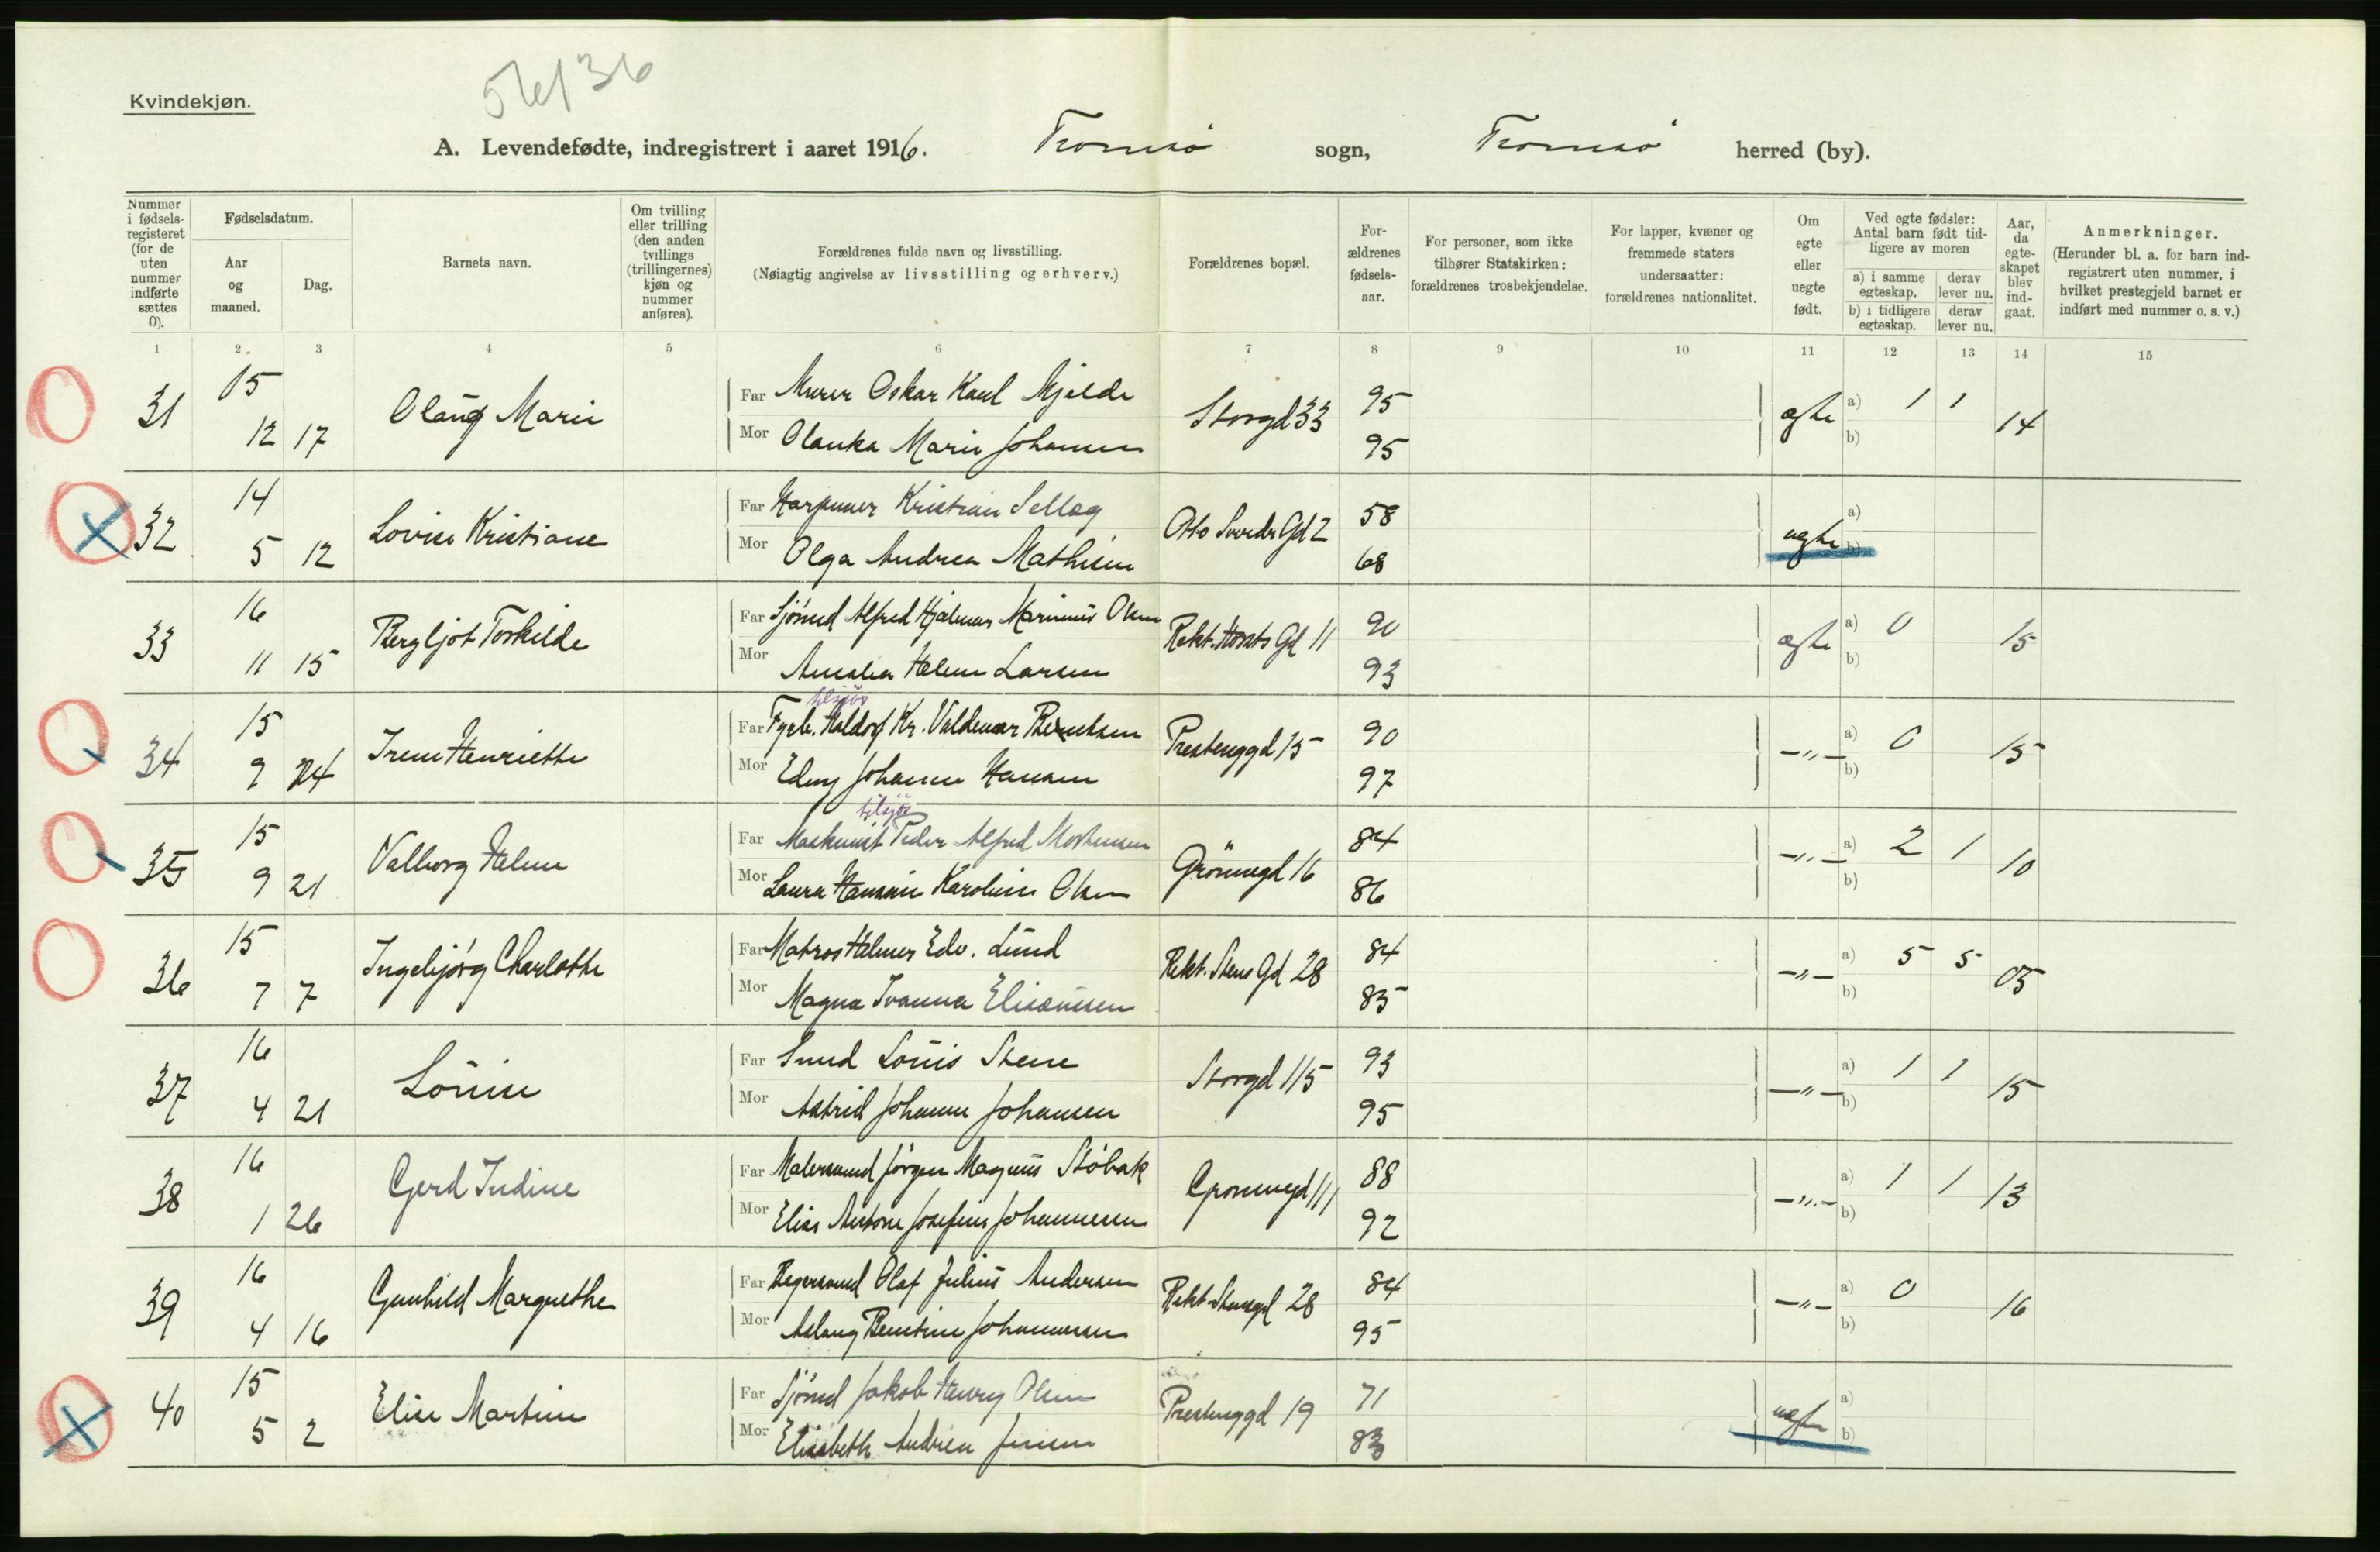 Kvindekjøn.
56/36
A. Levendefødte, indregistrert i aaret 1916. Tromsø sogn, Tromsø herred (by).
Nummer i fødsels-registeret (for de uten nummer indførte sættes 0).
Fødselsdatum.
Aar og maaned.
Dag.
Barnets navn.
Om tvilling eller trilling (den anden tvillings (trillingernes) kjøn og nummer anføres).
Forældrenes fulde navn og livsstilling.
(Nøiagtig angivelse av livsstilling og erhverv.)
Forældrenes bopæl.
For-ældrenes fødsels-aar.
For personer, som ikke tilhører Statskirken: forældrenes trosbekjendelse.
For lapper, kvæner og fremmede staters undersaatter: forældrenes nationalitet.
Om egte eller uegte født.
Ved egte fødsler: Antal barn født tid-ligere av moren
a) i samme egteskap. derav lever nu.
b) i tidligere egteskap. derav lever nu.
Aar, da egte-skapet blev ind-gaat.
Anmerkninger.
(Herunder bl. a. for barn ind-registrert uten nummer, i hvilket prestegjeld barnet er indført med nummer o. s. v.)
1 2 3 4 5 6 7 8 9 10 11 12 13 14 15
31 15 12 17 Olaug Marie
Far Murer Oskar Karl Mjelde Storgd 33 95
Mor Olauka Marie Johansen 95
ægte a) 1 1 b) 14
32 14 5 12 Lovise Kristiane
Far Harpuner Kristian Selleg Otto Sverdr Gd 2 58
Mor Olga Andrea Mathisen 68
uegte a) b)
33 16 11 15 Bergljot Torhilde
Far Sjömd Alfred Hjalmar Marinius Olsen Rekt. Horsts Gd 11 90
Mor Amalia Helene Larsen 93
ægte a) 0 b) 15
34 15 9 24 Irene Henriette
tilsjös
Far Fyrb. Haldorf Kr. Valdemar Berntsen Presteng gd 15 90
Mor Edny Johanne Hansen 97
—"— a) 0 b) 15
35 15 9 21 Valborg Helene
tilsjös
Far Maskinist Peder Alfred Mortensen Grönnegd 16 84
Mor Laura Hansine Karoline Olsen 86
—"— a) 2 1 b) 10
36 15 7 7 Ingebjörg Charlotte
Far Matros Helmer Edv. Lund Rekt. Stens Gd 28 84
Mor Magna Ivanna Elisæussen 85
—"— a) 5 5 b) 05
37 16 4 21 Louise
Far Smed Louis Stene Storgd 115 93
Mor Astrid Johanne Johansen 95
—"— a) 1 1 b) 15
38 16 1 26 Gerd Judine
Far Malersvend Jörgen Magnus Stöbak Grönnegd 111 88
Mor Elise Antone Josefine Johannesen 92
—"— a) 1 1 b) 13
39 16 4 16 Gunhild Margrethe
Far Bagersvend Olaf Julius Andersen Rekt. Stensgd 28 84
Mor Aslaug Berntine Johannesen 95
—"— a) 0 b) 16
40 15 5 2 Elise Martine
Far Sjömd Jakob Henry Olsen Prestenggd 19 71
Mor Elisabeth Andrea Jensen 83
uegte a) b)